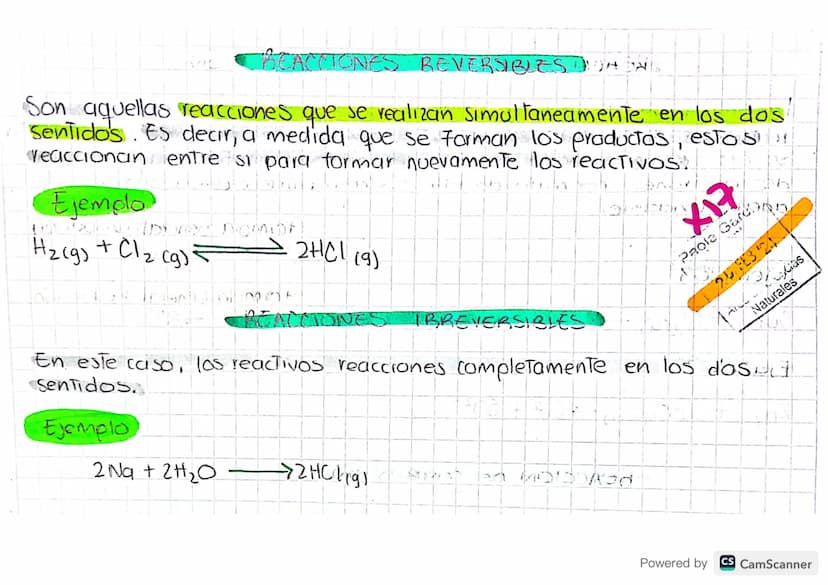 REACCIONES REVERSIBLES
Son aquellas reacciones que se realizan simultaneamente en los dos
sentidos. Es decir, a medida que se forman los productos, estos
reaccionan entre si para formar nuevamente los reactivos.
Ejemplo
X17
Paola
H2(g) + Cl2 (g) ⇌ 2HCl (g)
24 FEB 21
Naturales
REACCIONES IRREVERSIBLES
En este caso, los reactivos reacciones completamente en los dos
sentidos.
Ejemplo
2Na + 2H2O → 2HCl(g)
Powered by CS CamScanner